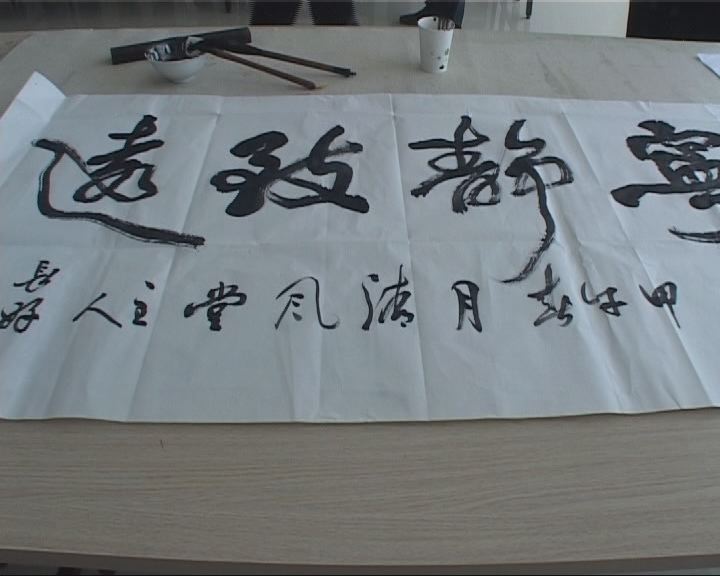 寧靜致遠
甲午春月清风堂主人長